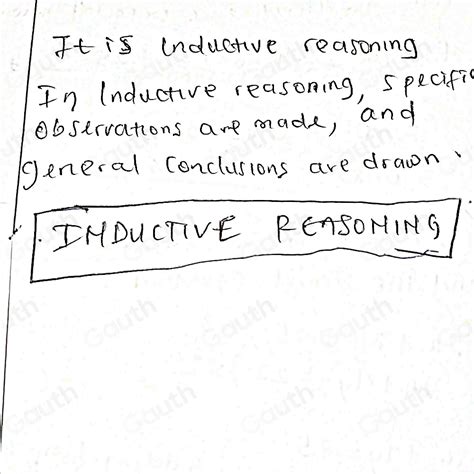 It is inductive reasoning
In Inductive reasoning, specific
observations are made, and
general conclusions are drawn.
INDUCTIVE REASONING